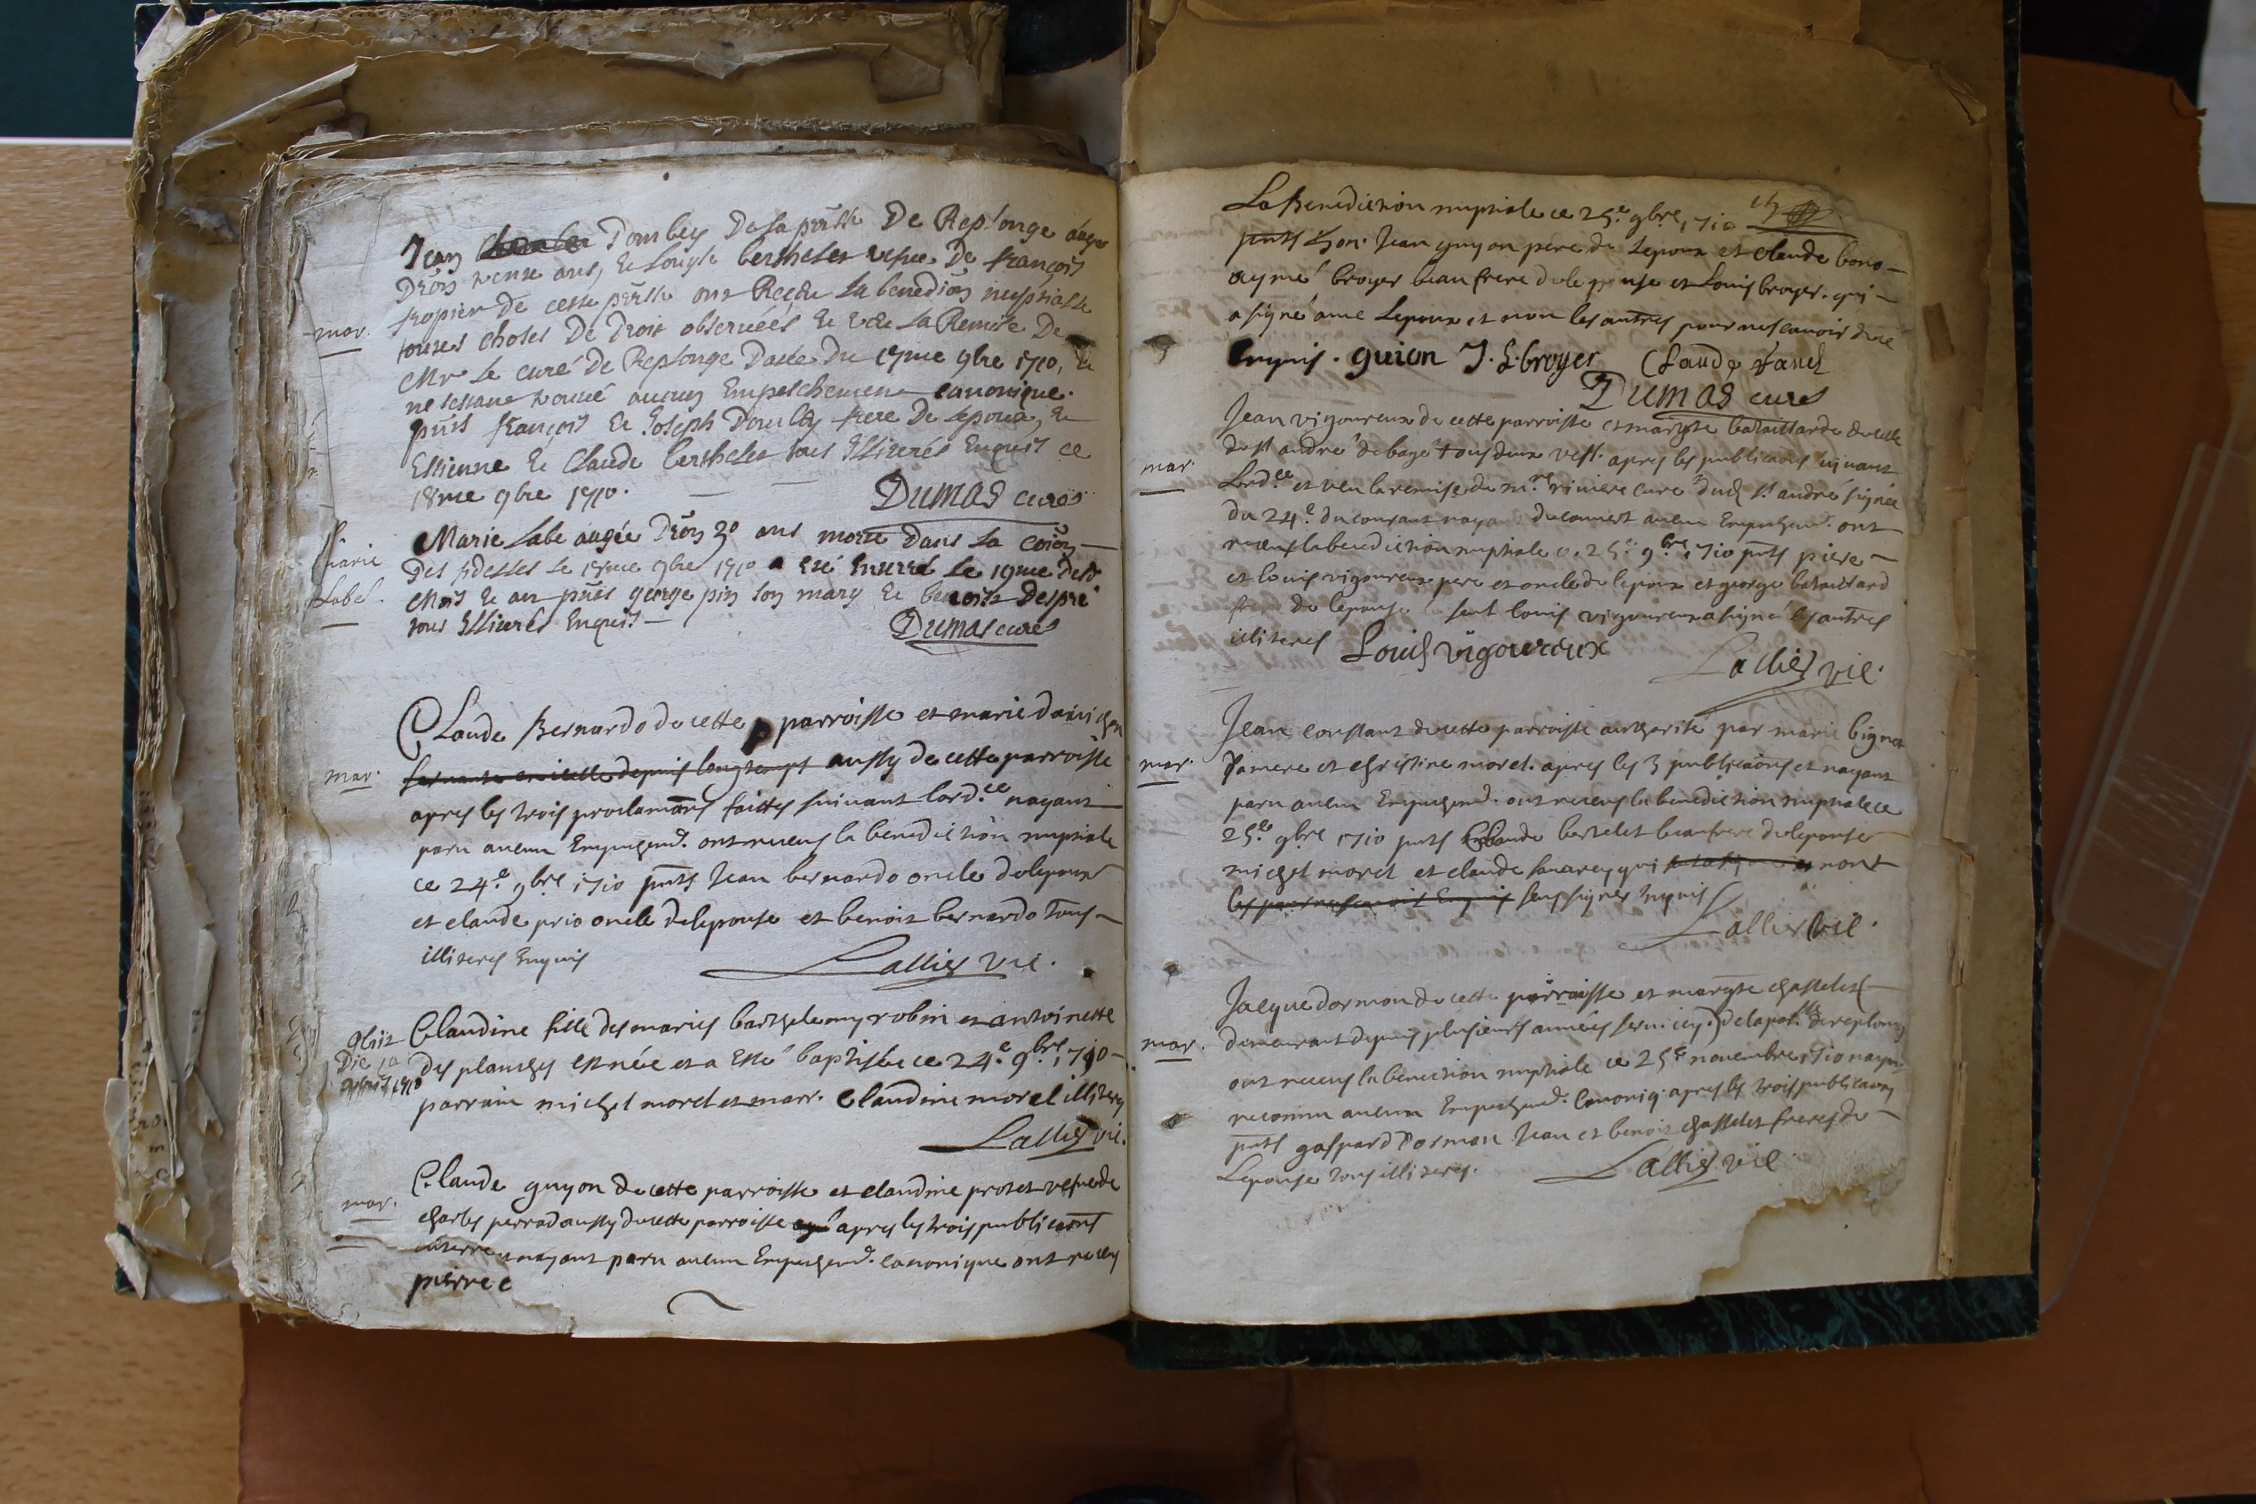 Jean Dombey De la prsse De Replonge âagé
D'eōn trente ans, & Louyse berthelet vefve De françois
tropier De cette prsse ont Reçeu la benedion nuptialle
mar.
toutes choses De Droit observeés & veu la Remise De
Mr le curé de Replonge Datée Du 17me 9bre 1710, &
ne sestant trouué aucun Empeschement canonique.
pūts françois & Joseph Dombey frere De lépoux, &
Estienne & Claude berthelet tous Illiterés Enquis ce
18me 9bre 1710.
Dumas curé
Marie
Label.
Marie Labe augée D'eōn 30 ans morte dans la
Des fidelles le 17me 9bre 1710 a eté Enterré le 19me Desd
Mois & an pūts george pin son mary & benoit Despré
tous Illiterés Enquis
Dumas curé
Claude Bernardo de cette parroisse et marie
mar.
servante en icelle depuis longtemps aussy de cette parroisse
apres les trois proclamaōns faittes suivant lord.ce nayant
paru aucun Empeschemt. ont receus la benediction nuptiale
ce 24.e 9bre 1710 pnts Jean bernardo oncle de lepoux
et claude prio oncle de lepouse et benoit bernardo tous
illiteres Enquis
Lallier vic.
Claudine fille des mariés barthelemy robin et antoinette
des planches est née et a esté baptisée ce 24.e 9bre 1710
parrain michel morel et marr. Claudine morel illiteres
Lallier vic.
mar.
Claude guyon de cette parroisse et claudine protet vefve de
charles perrad aussy de cette parroisse apres les trois publicaōns
nayant paru aucun Empeschemt. canonique ont receu
pierre c
La Benediction nuptiale ce 25.e 9bre 1710
pnts Jean guyon pere de Lepoux et claude bono
aymé broyer beaufrere de lepouse et Louis broyer. qui
a signé auec Lepoux et non les autres pour ne scauoir de ce
Enquis. guion J. L. broyer Claude
Dumas curé
Jean vigoureux de cette parroisse et margte bataillarde de celle
de st andré de bagé tous deux vefs. apres les publicaōns suivant
mar.
Lord.ce et veu la remise de mr. riviere curé dud st andré signée
du 24.e du courant nayant decouvert aucun Empeschemt. ont
receus la benediction nuptiale ce 25.e 9bre 1710 pnts piere
et louis vigoureux pere et oncle de lepoux et george bataillard
frere de lepouse le seul louis vigoureux a signé les autres
illiteres Louis vigoureux
Lallier vic.
Jean constant de cette parroisse authorité par marie bignet
mar.
sa mere et christine morel. apres les 3 publicaōns et nayant
paru aucun Empeschemt. ont receus la benediction nuptiale ce
25.e 9bre 1710 pnts Claude bertelet beaufrere de lepouse
michel morel et claude qui nont
les pour ne scavoir Enquis signer Enquis
Lallier vic.
Jacque dormon de cette parroisse et margte chasselet
mar.
demeurant depuis plusieurs années de la par.sse de replonge
ont receus la benediction nuptiale ce 25.e novembre 1710 nayant
reconnu aucun Empeschemt. Canoniq. apres les trois publicaōns
pnts gaspard Dormon Jean et benoit chasselet freres de
Lepouse tous illiteres.
Lallier vic.